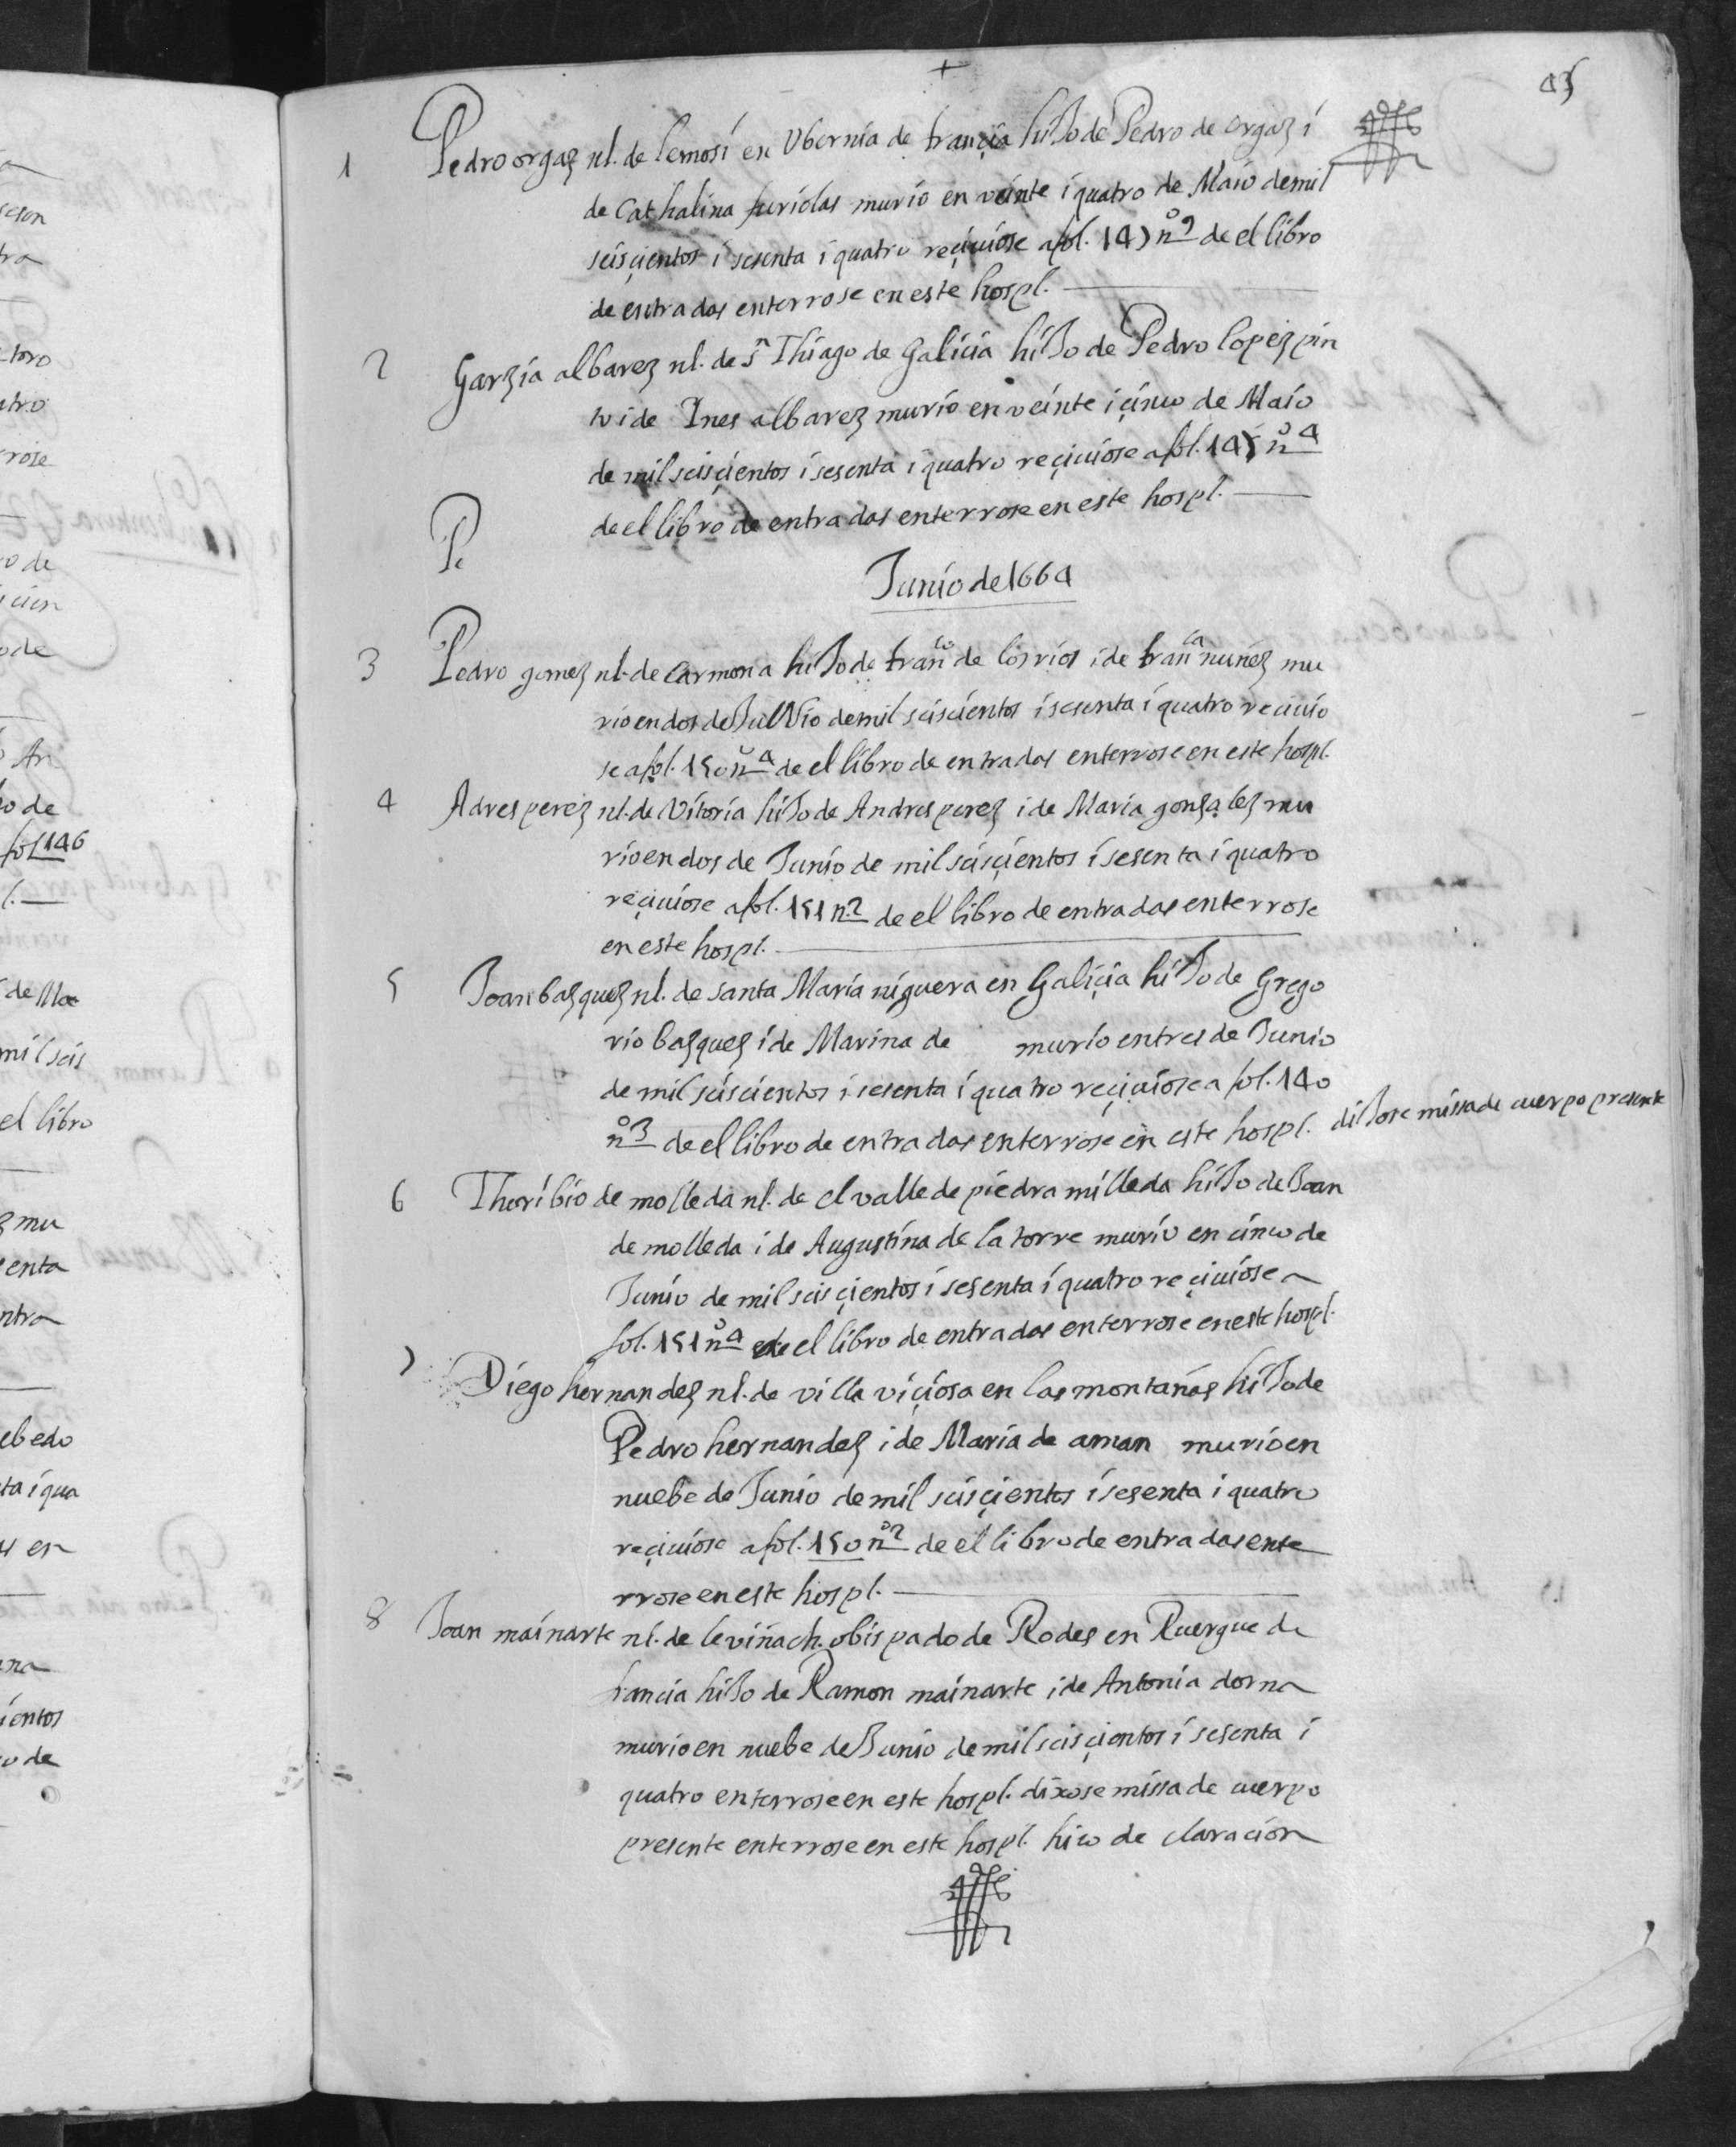 +
45
1 Pedro orgaz nl. de lemosi en Ubernia de françia hiJo de Pedro de orgaz i
de Cathalina furiolas murio en veinte i quatro de Maio de mil
seisçientos i sesenta i quatro reçiuiose a fol. 147 nº 9 de el libro
de entradas enterrose en este hospl.
2 Garzia albarez nl. de S Thiago de Galicia hiJo de Pedro lopez pin
to i de Ines albarez murio en veinte i çinco de Maio
de mil seisçientos i sesenta i quatro reçiuiose a fol. 145 nº 4
de el libro de entradas enterrose en este hospl.
Pe
Junio de 1664
3 Pedro gomez nl. de Carmona hiJo de franco de los rios i de franca nuñez mu
rio en dos de Junio de mil seiscientos i sesenta i quatro reciuio
se a fol. 150 nº 4 de el libro de entradas enterrose en este hospl.
4 Adres perez nl. de Vitoria hiJo de Andres perez i de Maria gonsalez mu
rio en dos de Junio de mil seisçientos i sesenta i quatro
reçiuiose a fol. 151 n. 2 de el libro de entradas enterrose
en este hospl.
5 Joan bazquez nl. de santa Maria niguera en Galiçia hiJo de Grego
rio bazquez i de Marina de murio en tres de Junio
de mil seiscientos i sesenta i quatro reçiuiose a fol. 140
nº 3 de el libro de entradas enterrose en este hospl. diJose missa de cuerpo presente
6 Thoribio de molleda nl. de el valle de piedra milleda hiJo de Joan
de molleda i de Augustina de la torre murio en cinco de
Junio de mil seisçientos i sesenta i quatro reçiuiose a
fol. 151 nº 4 de el libro de entradas enterrose en este hospl.
7 Diego hernandez nl. de villa viçiosa en las montañas hiJo de
Pedro hernandez i de Maria de aman murio en
nuebe de Junio de mil seisçientos i sesenta i quatro
reçiuiose a fol. 150 nº 2 de el libro de entradas ente
rrose en este hospl.
8 Joan mainarte nl. de leviñach. obispado de Rodes en Ruergue de
francia hiJo de Ramon mainarte i de Antonia dorna
murio en nuebe de Junio de mil seisçientos i sesenta i
quatro enterrose en este hospl. dixose missa de cuerpo
presente enterrose en este hospl. hico declaracion